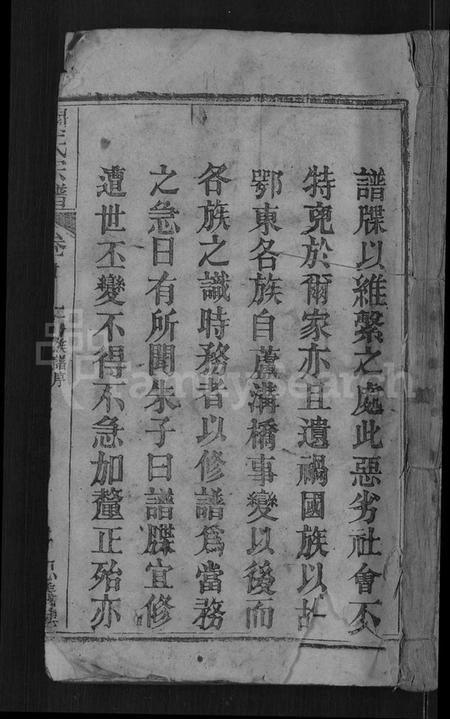 譜牒以維繫之處此惡劣社會不
特兇於爾家亦且遺禍國族以故
鄂東各族自蘆溝橋事變以後而
各族之識時務者以修譜爲當務
之急日有所聞朱子曰譜牒宜修
遭世丕變不得不急加釐正殆亦
氏宗譜
卷首
族譜序
FamilySearch